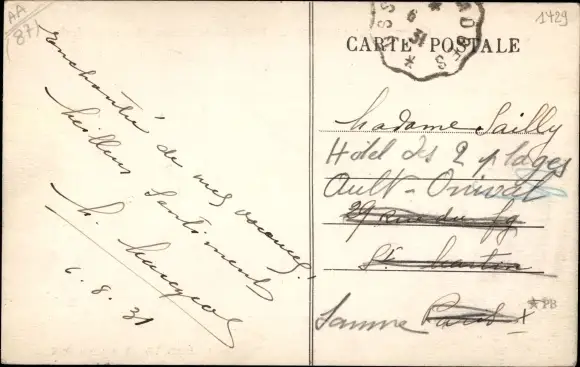 AA
(871
1429
6
31
CARTE POSTALE
Enchantée de mes vacances.
Meilleurs Sentiments
6.8.31
Madame Sailly
Hôtel des 2 plages
Ault-Onival
29 Rue du fg
St Martin
Somme Paris X
*PB